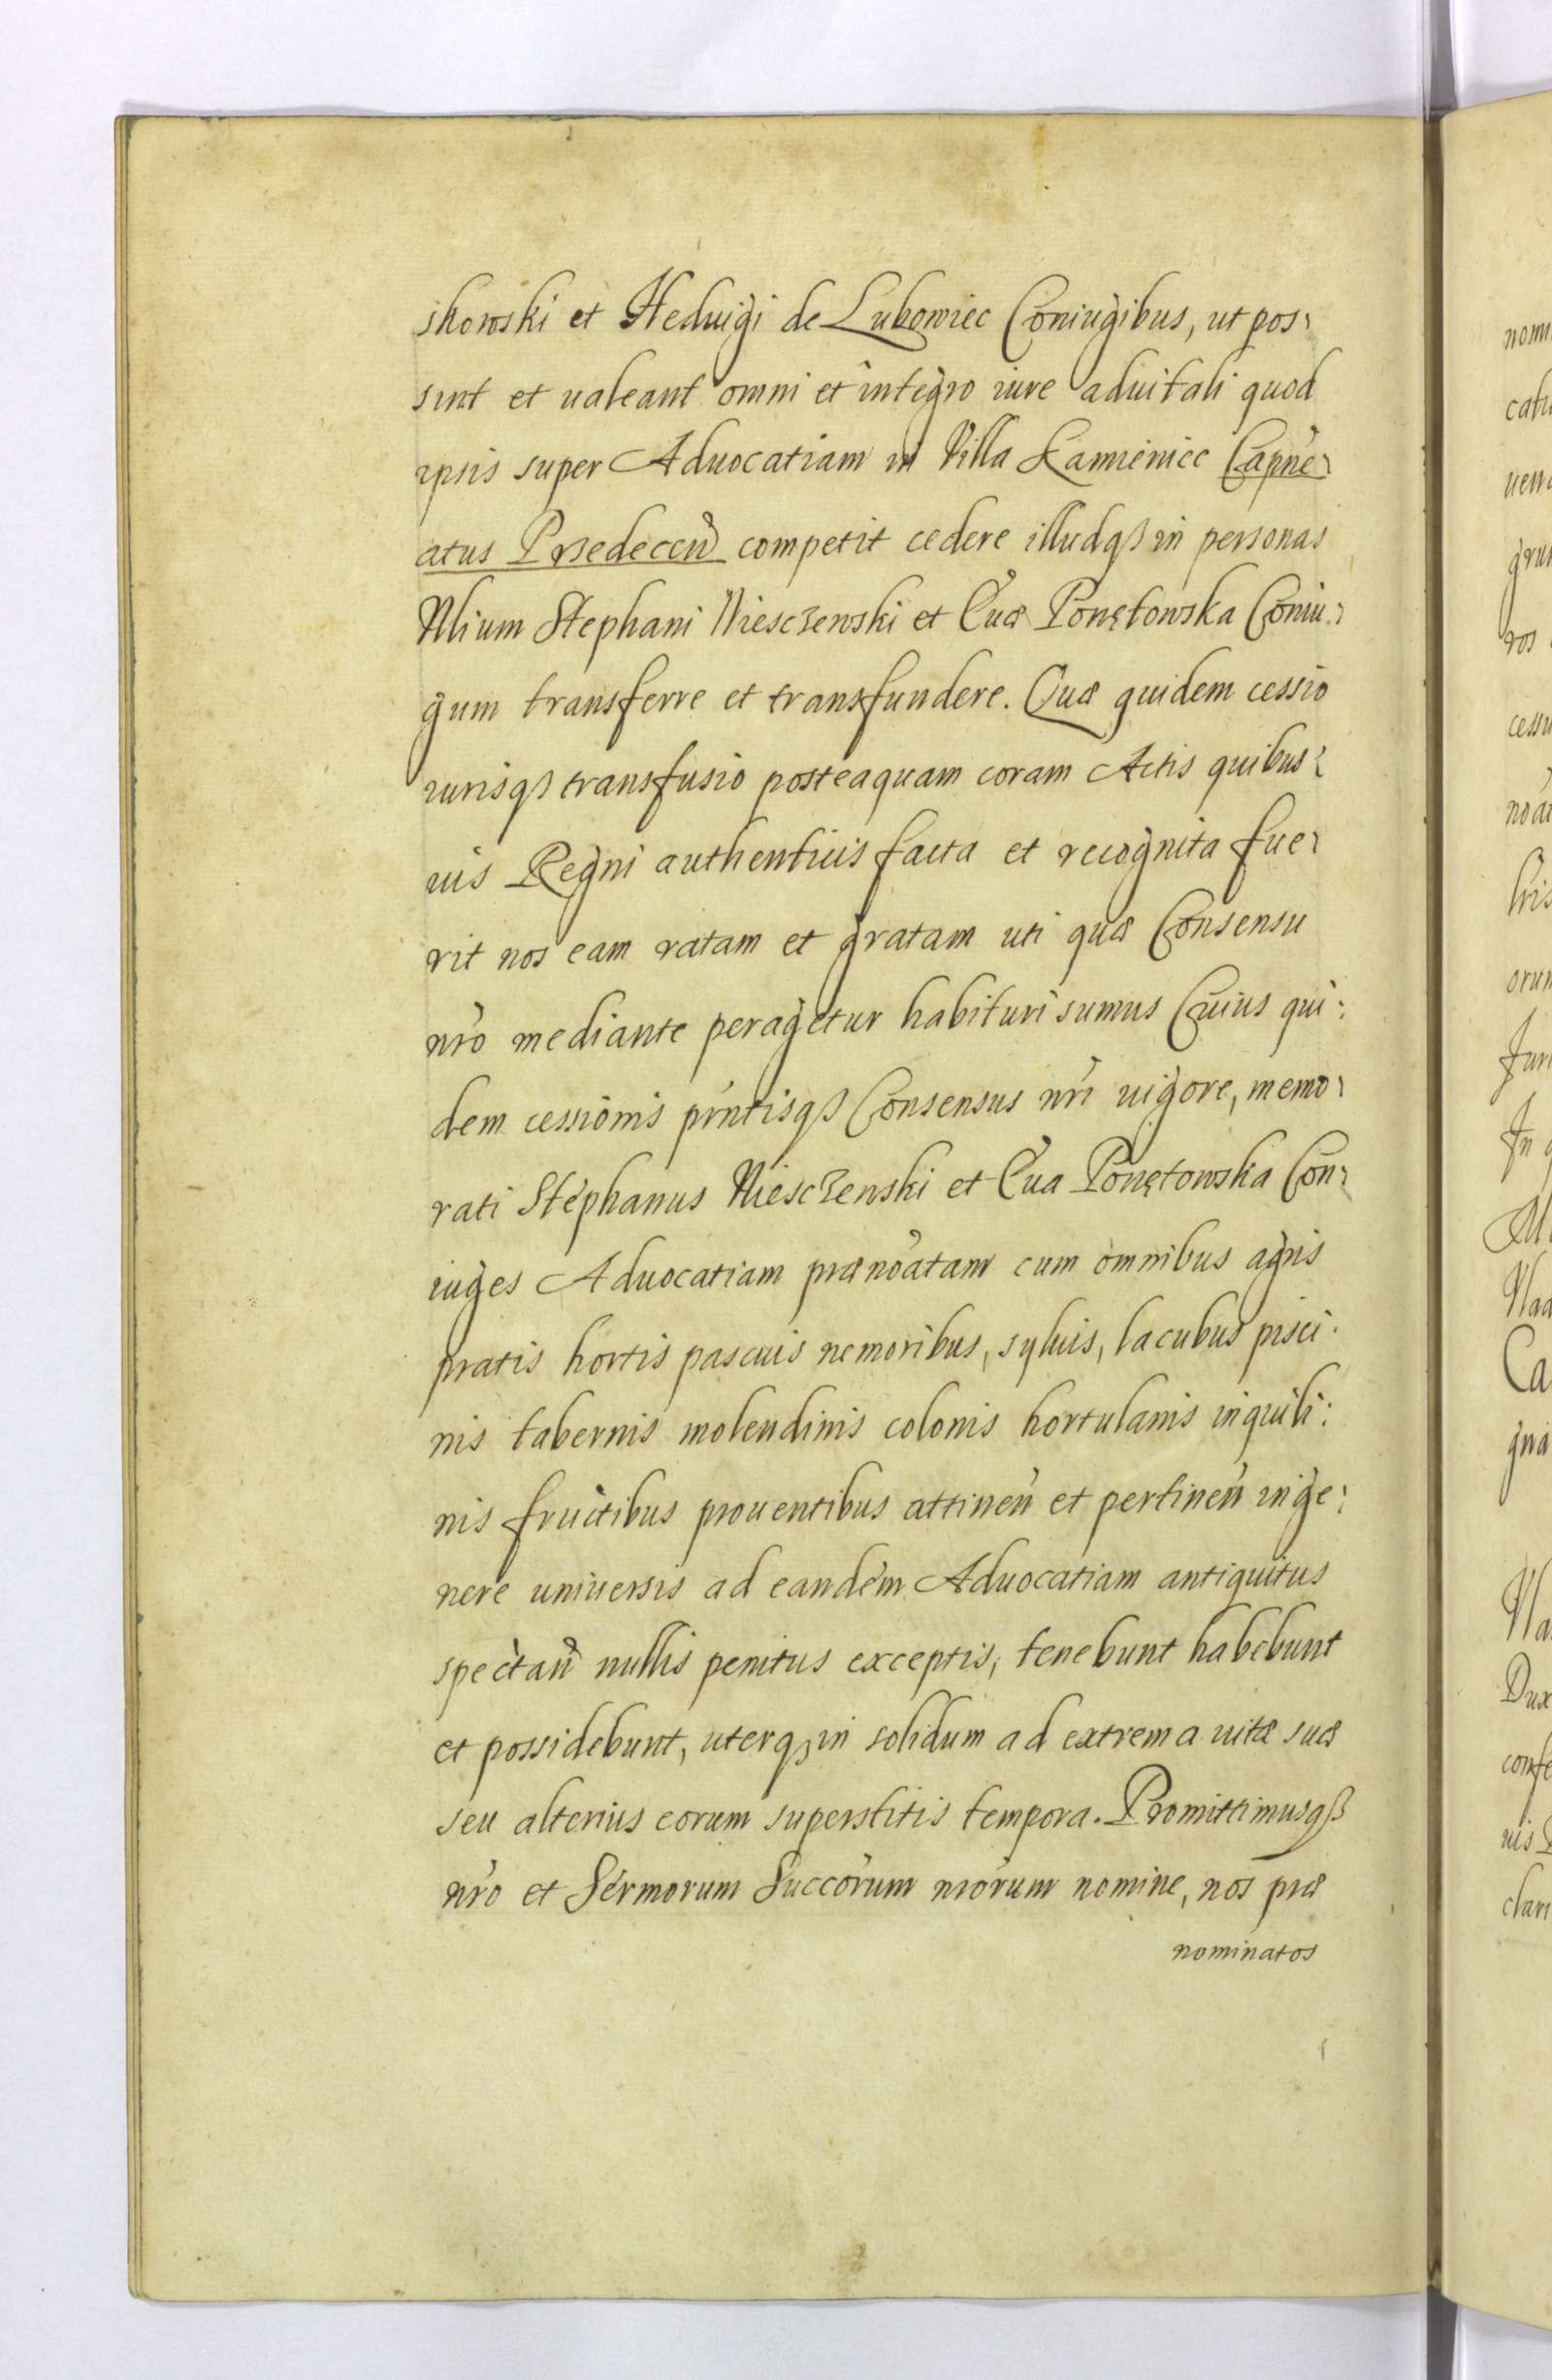 skowski et Heduigi de Lubowiec Coniugibus, ut pos⸗
sint et ualeant omni et integro iure aduitali quod
ipsis super Aduocatiam in Villa Kamieniec Capne⸗
atus Prsedecen̄ competit cedere illudqȝ in personas
Nlium Stephani Niesczewski et Euæ Ponętowska Coniu⸗
gum transferre et transfundere. Quæ quidem cessio
iurisqȝ transfusio posteaquam coram Actis quibus⸗
uis Regni authenticis facta et recognita fue⸗
rit nos eam ratam et gratam uti quæ Consensu
nro mediante peragetur habituri sumus Cuius qui⸗
dem cessionis pr̄ntisqȝ Consensus nri uigore, memo⸗
rati Stephanus Niesczewski et Eua Ponętowska Con⸗
iuges Aduocatiam prænoatam cum omnibus agris
pratis hortis pascuis nemoribus, syluis, lacubus pisci⸗
nis tabernis molendinis colonis hortulanis inquili⸗
nis fructibus prouentibus attinen̄ et pertinen̄ in ge⸗
nere uniuersis ad eandem Aduocatiam antiquitus
spectan̄ nullis penitus exceptis, tenebunt habebunt
et possidebunt, uterqȝ in solidum ad extrema uitæ suæ
seu alterius eorum superstitis tempora. Promittimusqȝ
nro et Sermorum Succorum nrorum nomine, nos præ
nominatos